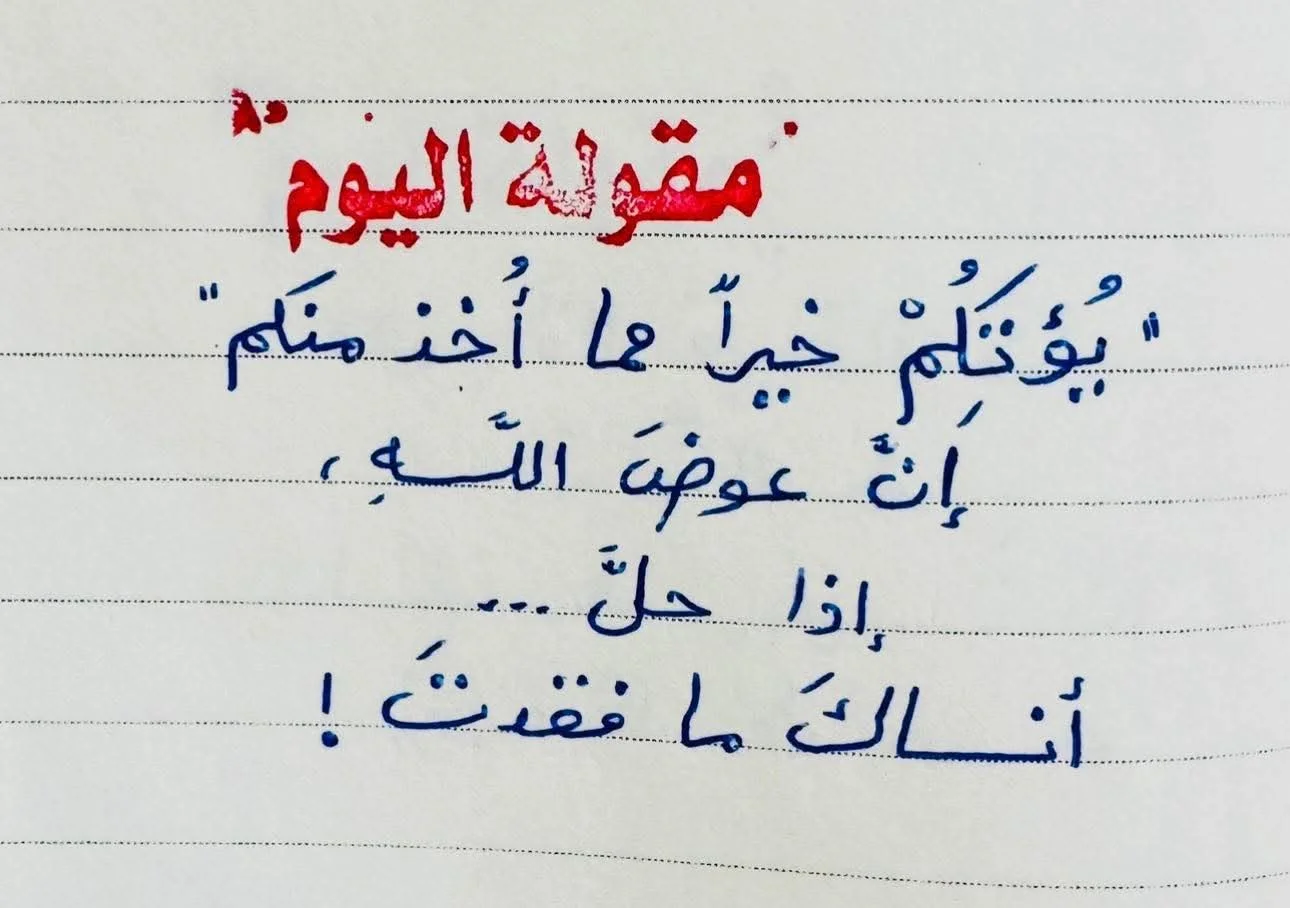 مقولة اليوم
"يُؤتكُمْ خيراً مما أُخذ منكم"
إَنَّ عوضَ اللَّـهِ،
إذا حلَّ...
أنساكَ ما فقدتَ!